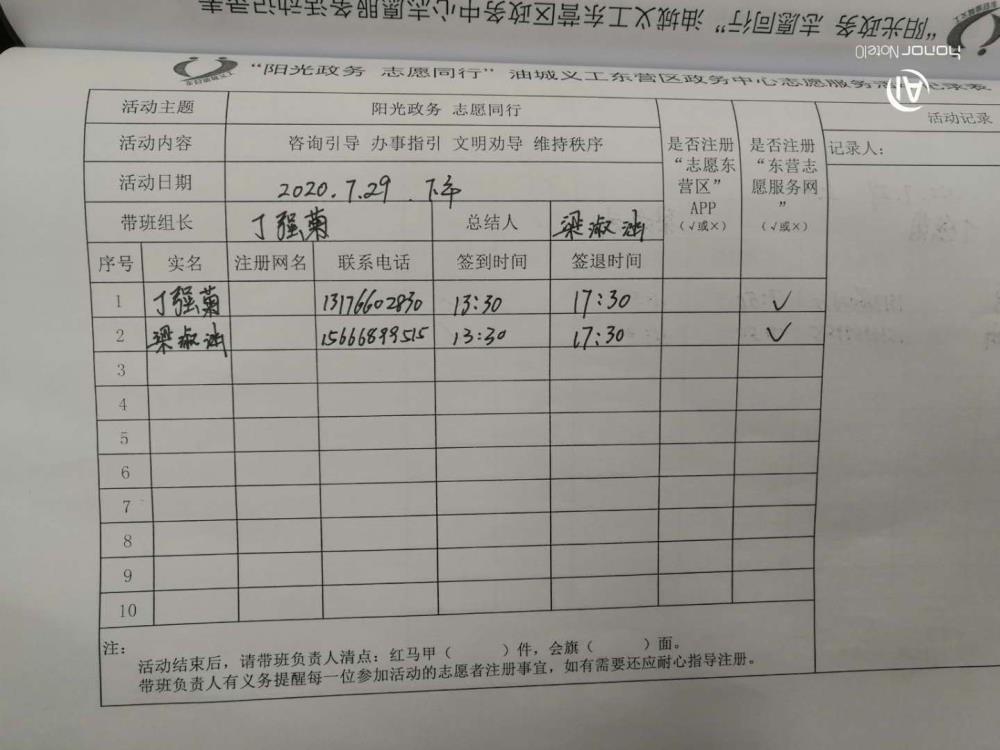 "阳光政务 志愿同行" 油城义工东营区政务中心志愿服务活动记录表
honor Note10
AI
"阳光政务 志愿同行" 油城义工东营区政务中心志愿服务活动记录表
活动主题 阳光政务 志愿同行
活动内容 咨询引导 办事指引 文明劝导 维持秩序
活动日期 2020.7.29.下午
是否注册“志愿东营区”APP(√或×)
是否注册“东营志愿服务网”(√或×)
活动记录
记录人:
带班组长 丁强菊 总结人 梁淑涵
序号 实名 注册网名 联系电话 签到时间 签退时间
1 丁强菊 13176602830 13:30 17:30 √
2 梁淑涵 15666899515 13:30 17:30 √
3
4
5
6
7
8
9
10
注:
活动结束后,请带班负责人清点:红马甲( )件,会旗( )面。
带班负责人有义务提醒每一位参加活动的志愿者注册事宜,如有需要还应耐心指导注册。